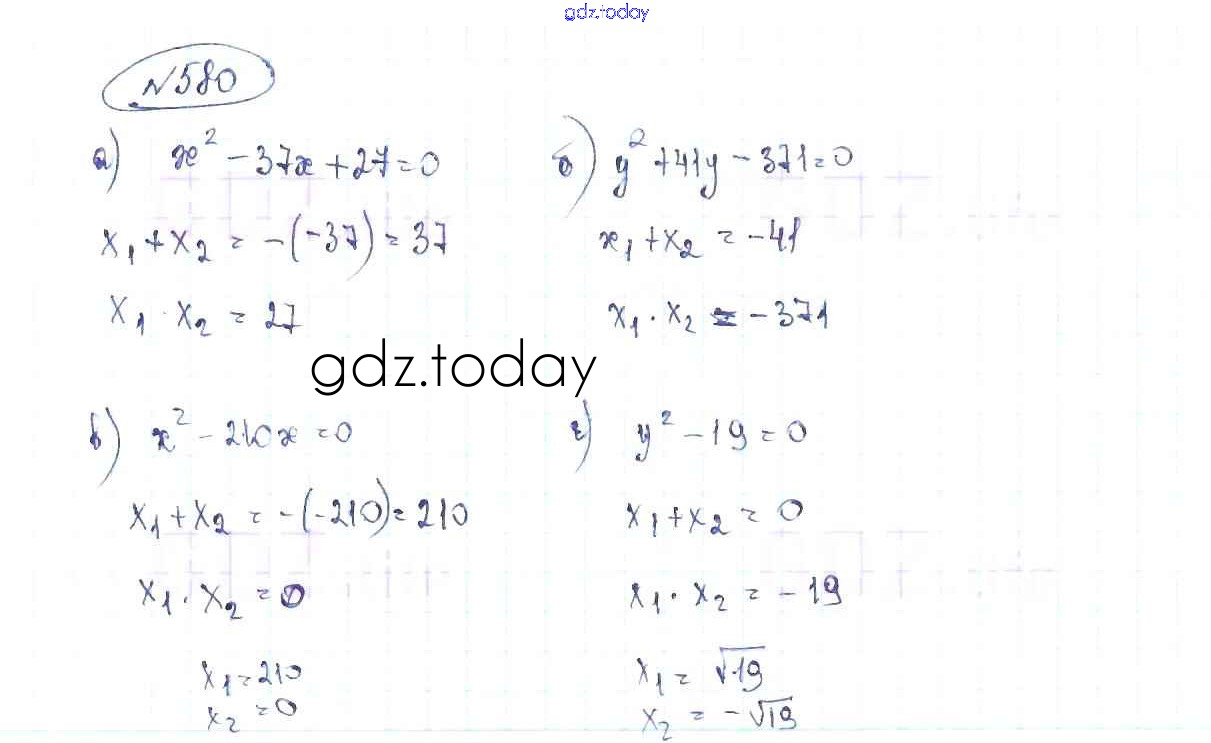 gdz.today
№580
а) x² - 37x + 27 = 0
x₁ + x₂ = -(-37) = 37
x₁ · x₂ = 27
б) y² + 41y - 371 = 0
x₁ + x₂ = -41
x₁ · x₂ = -371
gdz.today
в) x² - 210x = 0
x₁ + x₂ = -(-210) = 210
x₁ · x₂ = 0
x₁ = 210
x₂ = 0
г) y² - 19 = 0
x₁ + x₂ = 0
x₁ · x₂ = -19
x₁ = √19
x₂ = -√19